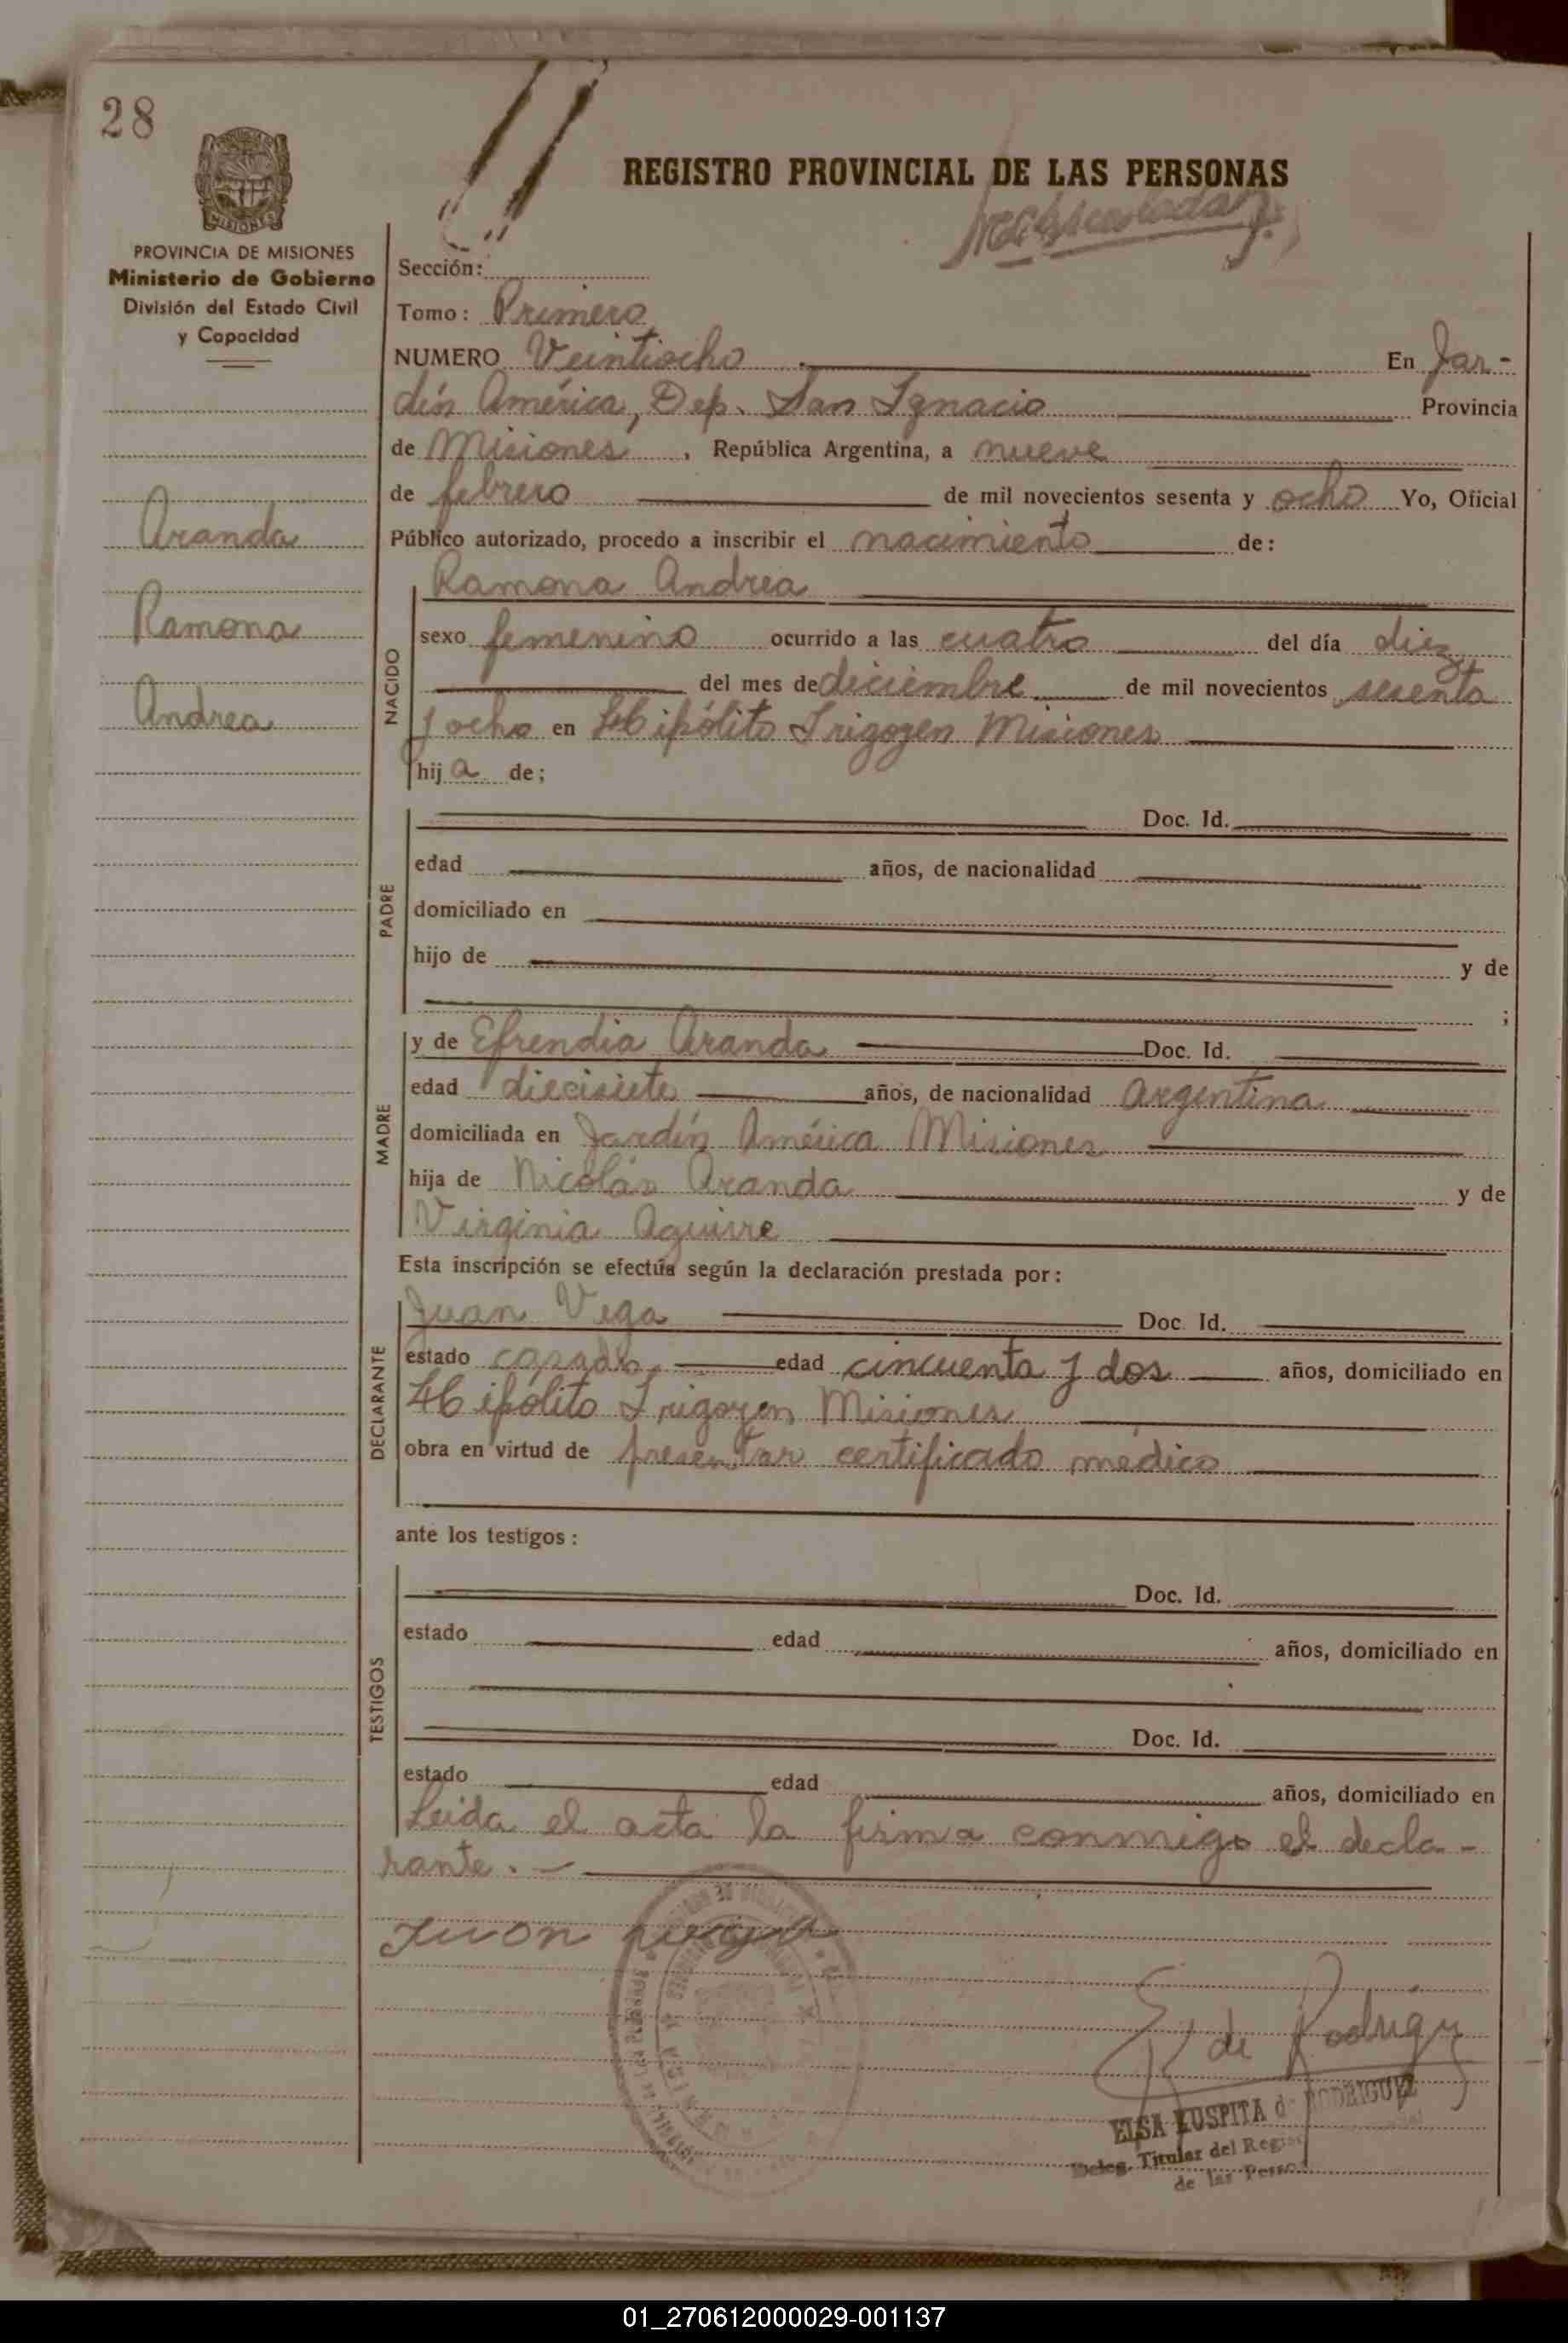 28
REGISTRO PROVINCIAL DE LAS PERSONAS
MISIONES
PROVINCIA DE MISIONES
Ministerio de Gobierno
División del Estado Civil
y Capacidad
Sección:
Tomo: Primero
NUMERO Veintiocho En Jar-
dín América, Dep. San Ignacio Provincia
de Misiones, República Argentina, a nueve
de febrero de mil novecientos sesenta y ocho Yo, Oficial
Público autorizado, procedo a inscribir el nacimiento de:
Aranda
Ramona
Andrea
NACIDO
Ramona Andrea
sexo femenino ocurrido a las cuatro del día diez
del mes de diciembre de mil novecientos sesenta
y ocho en Hipólito Irigoyen Misiones
hija de;
PADRE
Doc. Id.
edad años, de nacionalidad
domiciliado en
hijo de y de
;
MADRE
y de Efrendia Aranda Doc. Id.
edad diecisiete años, de nacionalidad Argentina
domiciliada en Jardín América Misiones
hija de Nicolás Aranda y de
Virginia Aguirre
Esta inscripción se efectúa según la declaración prestada por:
DECLARANTE
Juan Vega Doc. Id.
estado casado, edad cincuenta y dos años, domiciliado en
Hipólito Irigoyen Misiones
obra en virtud de presentar certificado médico
ante los testigos:
TESTIGOS
Doc. Id.
estado edad años, domiciliado en
Doc. Id.
estado edad años, domiciliado en
Leida el acta la firma conmigo el decla-
rante.-
Juan
E de Rodrigz
ELSA KUSPITA de RODRIGUEZ
Deleg. Titular del Regis
de las Person
01_270612000029-001137